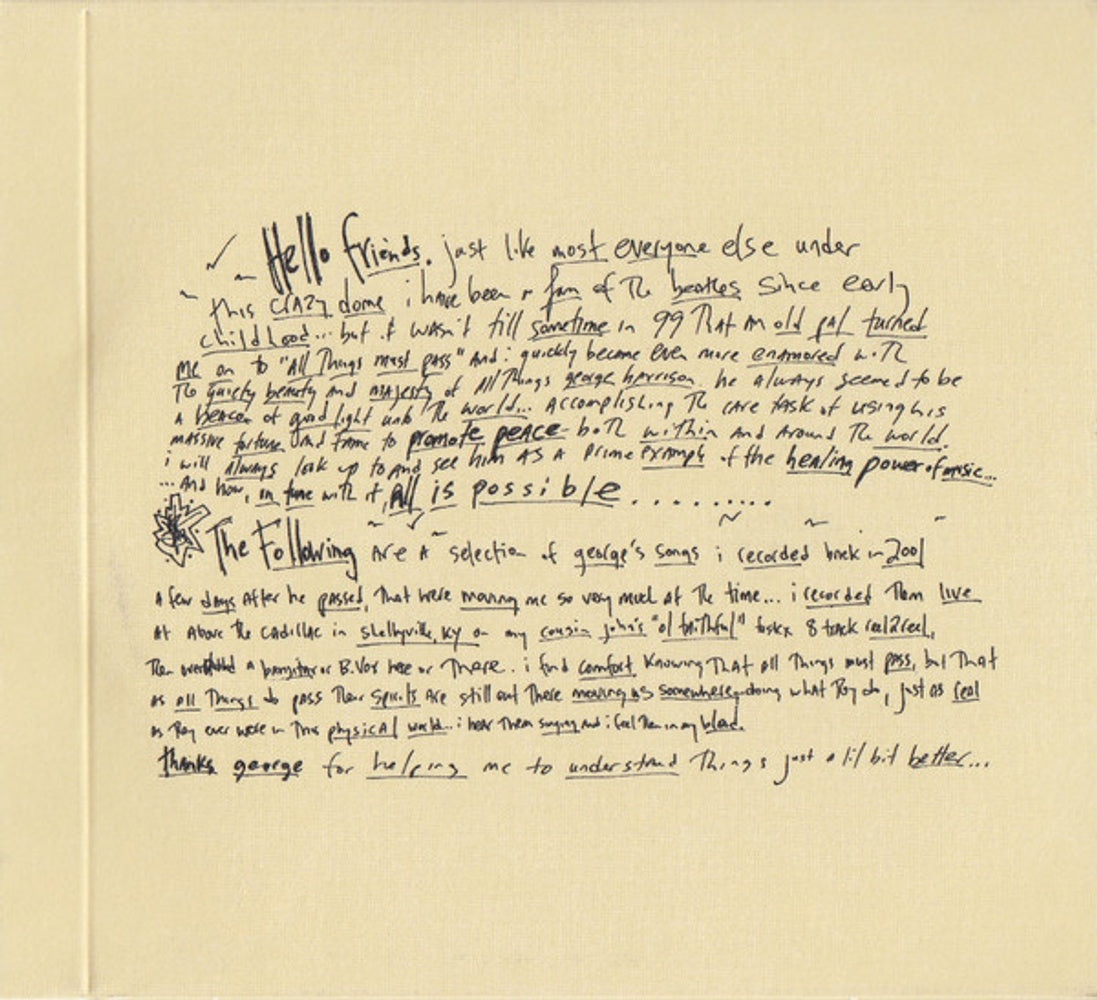 Hello friends. just like most everyone else under
this crazy dome i have been a fan of The beatles since early
childhood... but it wasn't till sometime in 99 That an old pal turned
me on to "All Things must pass" And i quickly became even more enamored with
The quiety beauty and majesty of All Things george harrison. he always seemed to be
a beacon of good light unto The world... Accomplishing The rare task of using his
massive fortune and fame to promote peace both within and Around The world.
i will always look up to and see him As a prime example of the healing power of music...
...And how, in tune with it, All is possible.........
The Following Are A selection of george's songs i recorded back in 2001
A few days After he passed, That were moving me so very much At The time... i recorded Them live
At Above The Cadillac in shelbyville, KY on my cousin john's "ol faithful" tascx 8 track reel2reel,
Then a banjitar or B.Vox here or There. i find comfort Knowing That all Things must pass, but That
as all Things do pass Their Spirits Are still out There moving us somewhere, doing what They do, just as real
as They ever were in This physical world... i hear Them singing and i feel Them in my blood.
thanks george for helping me to understand Things just a lil bit better...